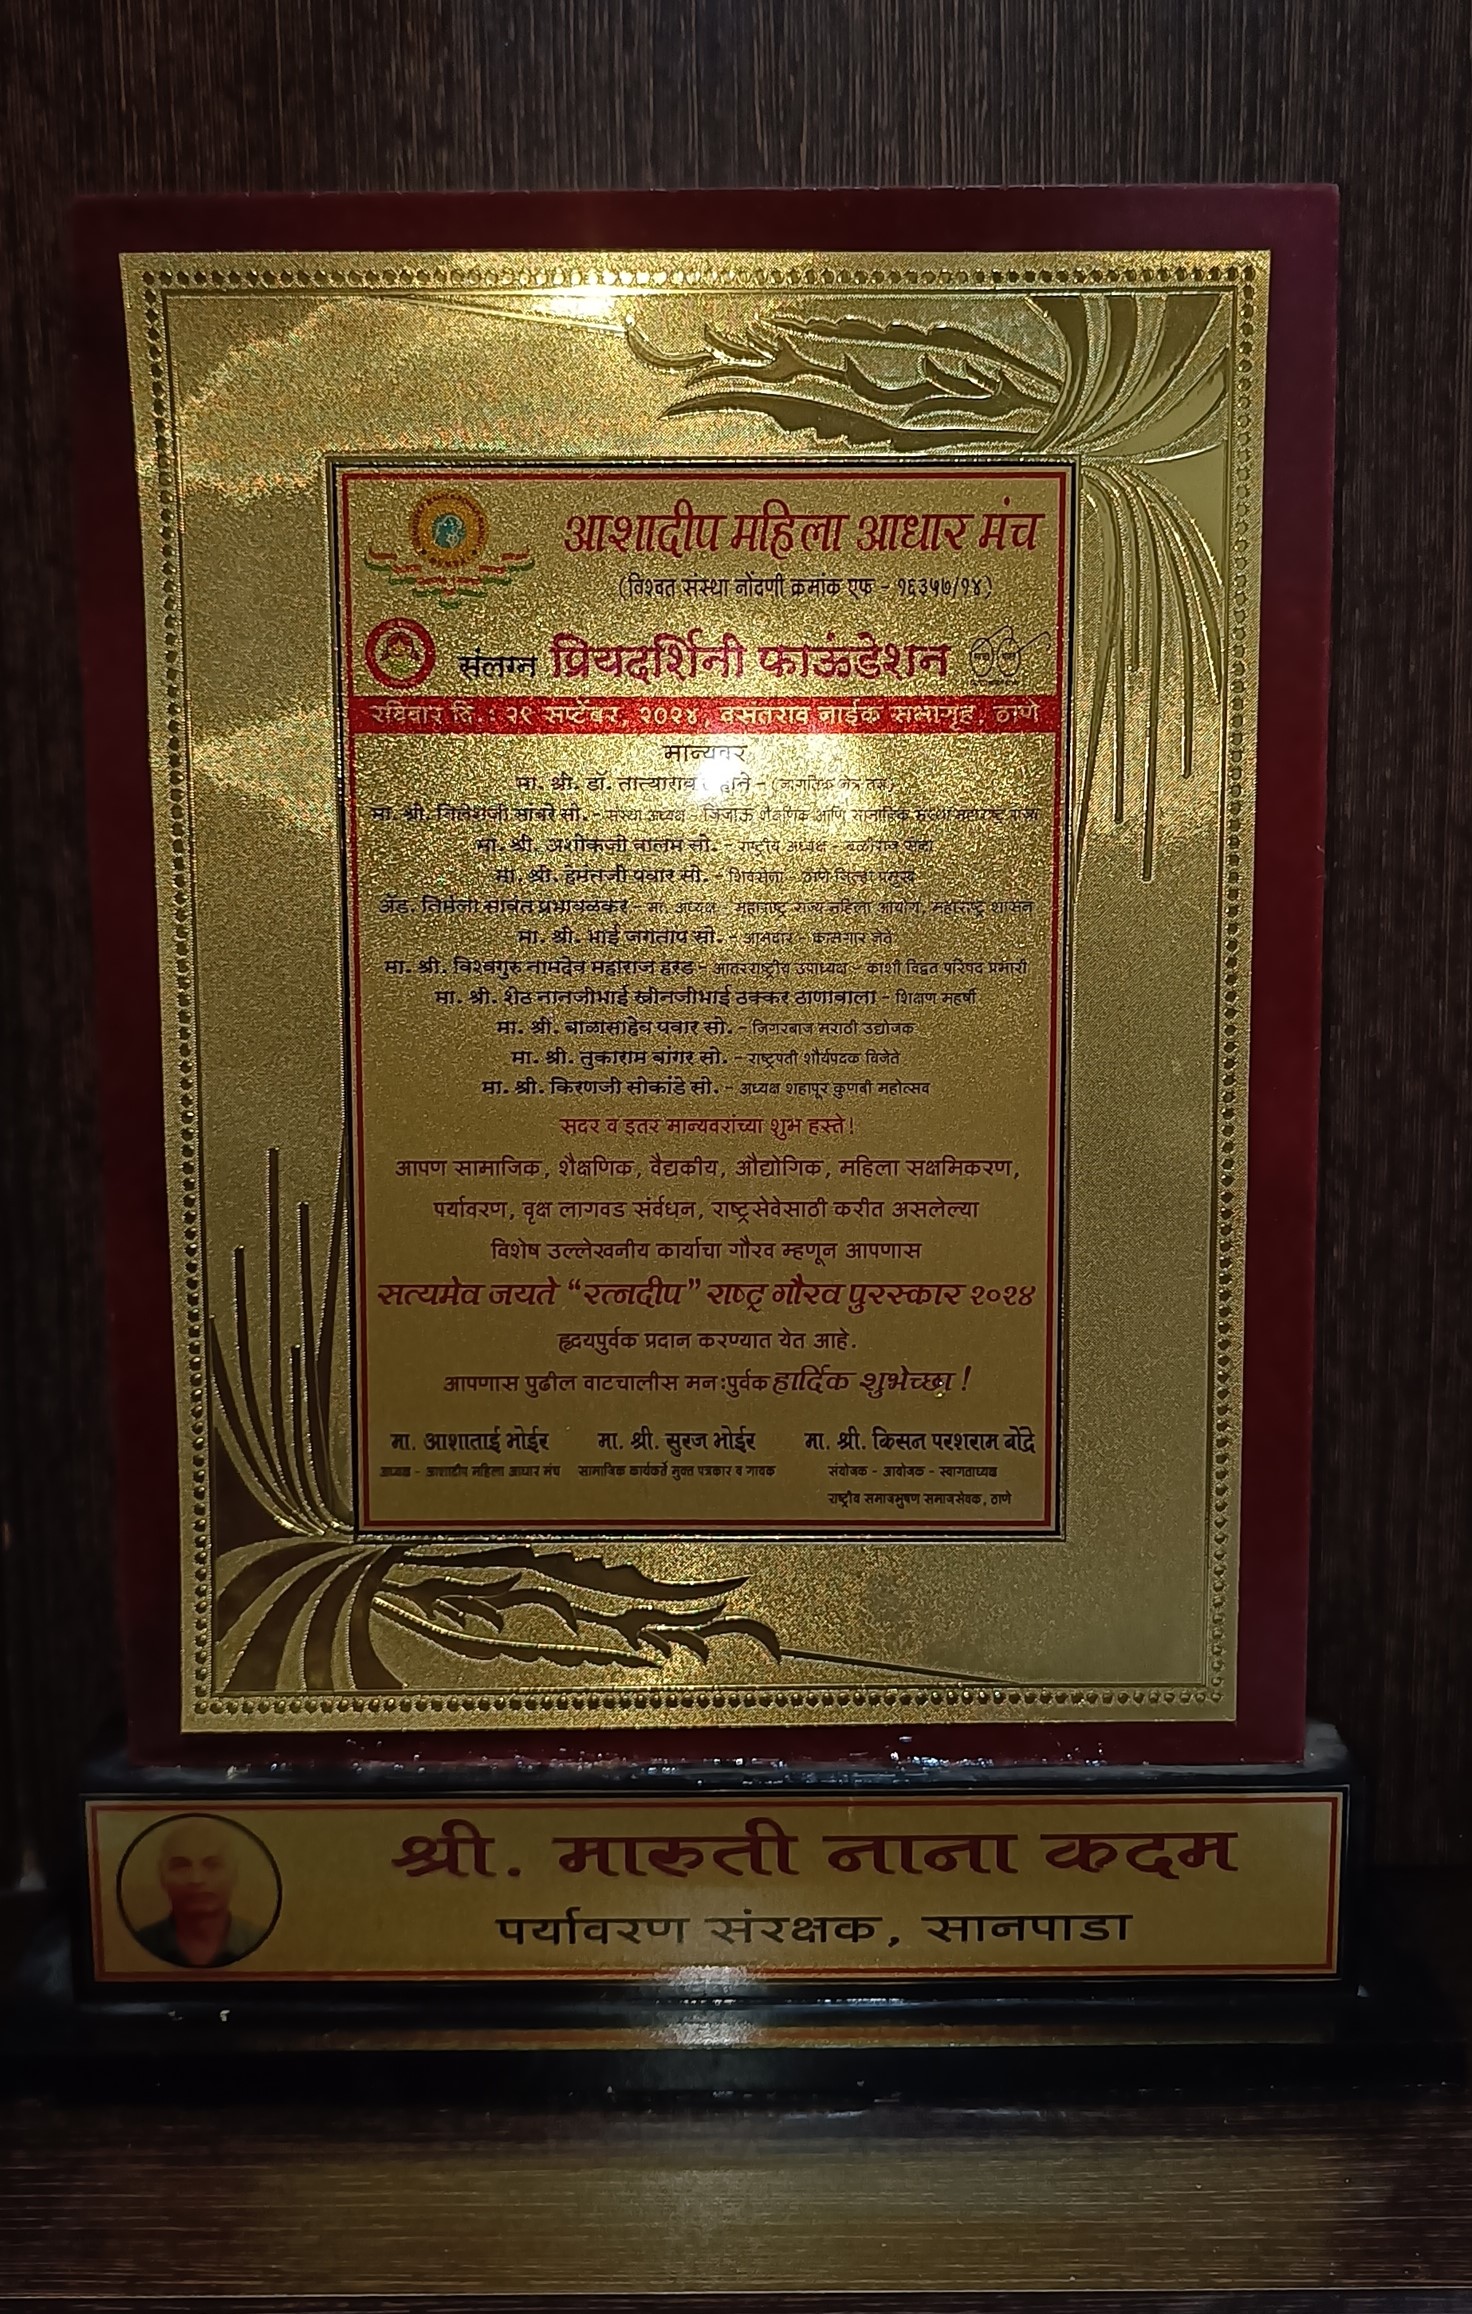 आशादीप महिला आधार मंच
(विश्वत संस्था नोंदणी क्रमांक एफ - १६३५७/१४)
संलग्न प्रियदर्शिनी फाऊंडेशन
रविवार दि. : २९ सप्टेंबर, २०२४, वसंतराव नाईक सभागृह, ठाणे
मान्यवर
मा. श्री. डॉ. तात्याराव
मा. श्री. निलेशजी सांबरे सो. - संस्था अध्यक्ष - जिजाऊ शैक्षणिक आणि सामाजिक संस्था महाराष्ट्र राज्य
मा. श्री. अशोकजी वालम सो. - राष्ट्रीय अध्यक्ष - बळीराज सेना
मा. श्री. हेमंतजी पवार सो. - शिवसेना - ठाणे जिल्हा प्रमुख
अ‍ॅड. निर्मला सावंत प्रभावळकर - मा. अध्यक्ष - महाराष्ट्र राज्य महिला आयोग, महाराष्ट्र शासन
मा. श्री. भाई जगताप सो. - आमदार - कामगार नेते
मा. श्री. विश्वगुरु नामदेव महाराज हरड - आंतरराष्ट्रीय उपाध्यक्ष - काशी विद्वत परिषद प्रभारी
मा. श्री. शेठ नानजीभाई खीनजीभाई ठक्कर ठाणावाला - शिक्षण महर्षी
मा. श्री. बाळासाहेब पवार सो. - जिगरबाज मराठी उद्योजक
मा. श्री. तुकाराम बांगर सो. - राष्ट्रपती शौर्यपदक विजेते
मा. श्री. किरणजी सोकांडे सो. - अध्यक्ष शहापूर कुणबी महोत्सव
सदर व इतर मान्यवरांच्या शुभ हस्ते!
आपण सामाजिक, शैक्षणिक, वैद्यकीय, औद्योगिक, महिला सक्षमिकरण,
पर्यावरण, वृक्ष लागवड संर्वधन, राष्ट्रसेवेसाठी करीत असलेल्या
विशेष उल्लेखनीय कार्याचा गौरव म्हणून आपणास
सत्यमेव जयते “रत्नदीप” राष्ट्र गौरव पुरस्कार २०२४
ह्रदयपुर्वक प्रदान करण्यात येत आहे.
आपणास पुढील वाटचालीस मनःपुर्वक हार्दिक शुभेच्छा!
मा. आशाताई भोईर मा. श्री. सुरज भोईर मा. श्री. किसन परशराम बोंद्रे
अध्यक्ष - आशादीप महिला आधार मंच सामाजिक कार्यकर्ते मुक्त पत्रकार व गायक संयोजक - आयोजक - स्वागताध्यक्ष
राष्ट्रीय समाजभुषण समाजसेवक, ठाणे
श्री. मारुती नाना कदम
पर्यावरण संरक्षक, सानपाडा